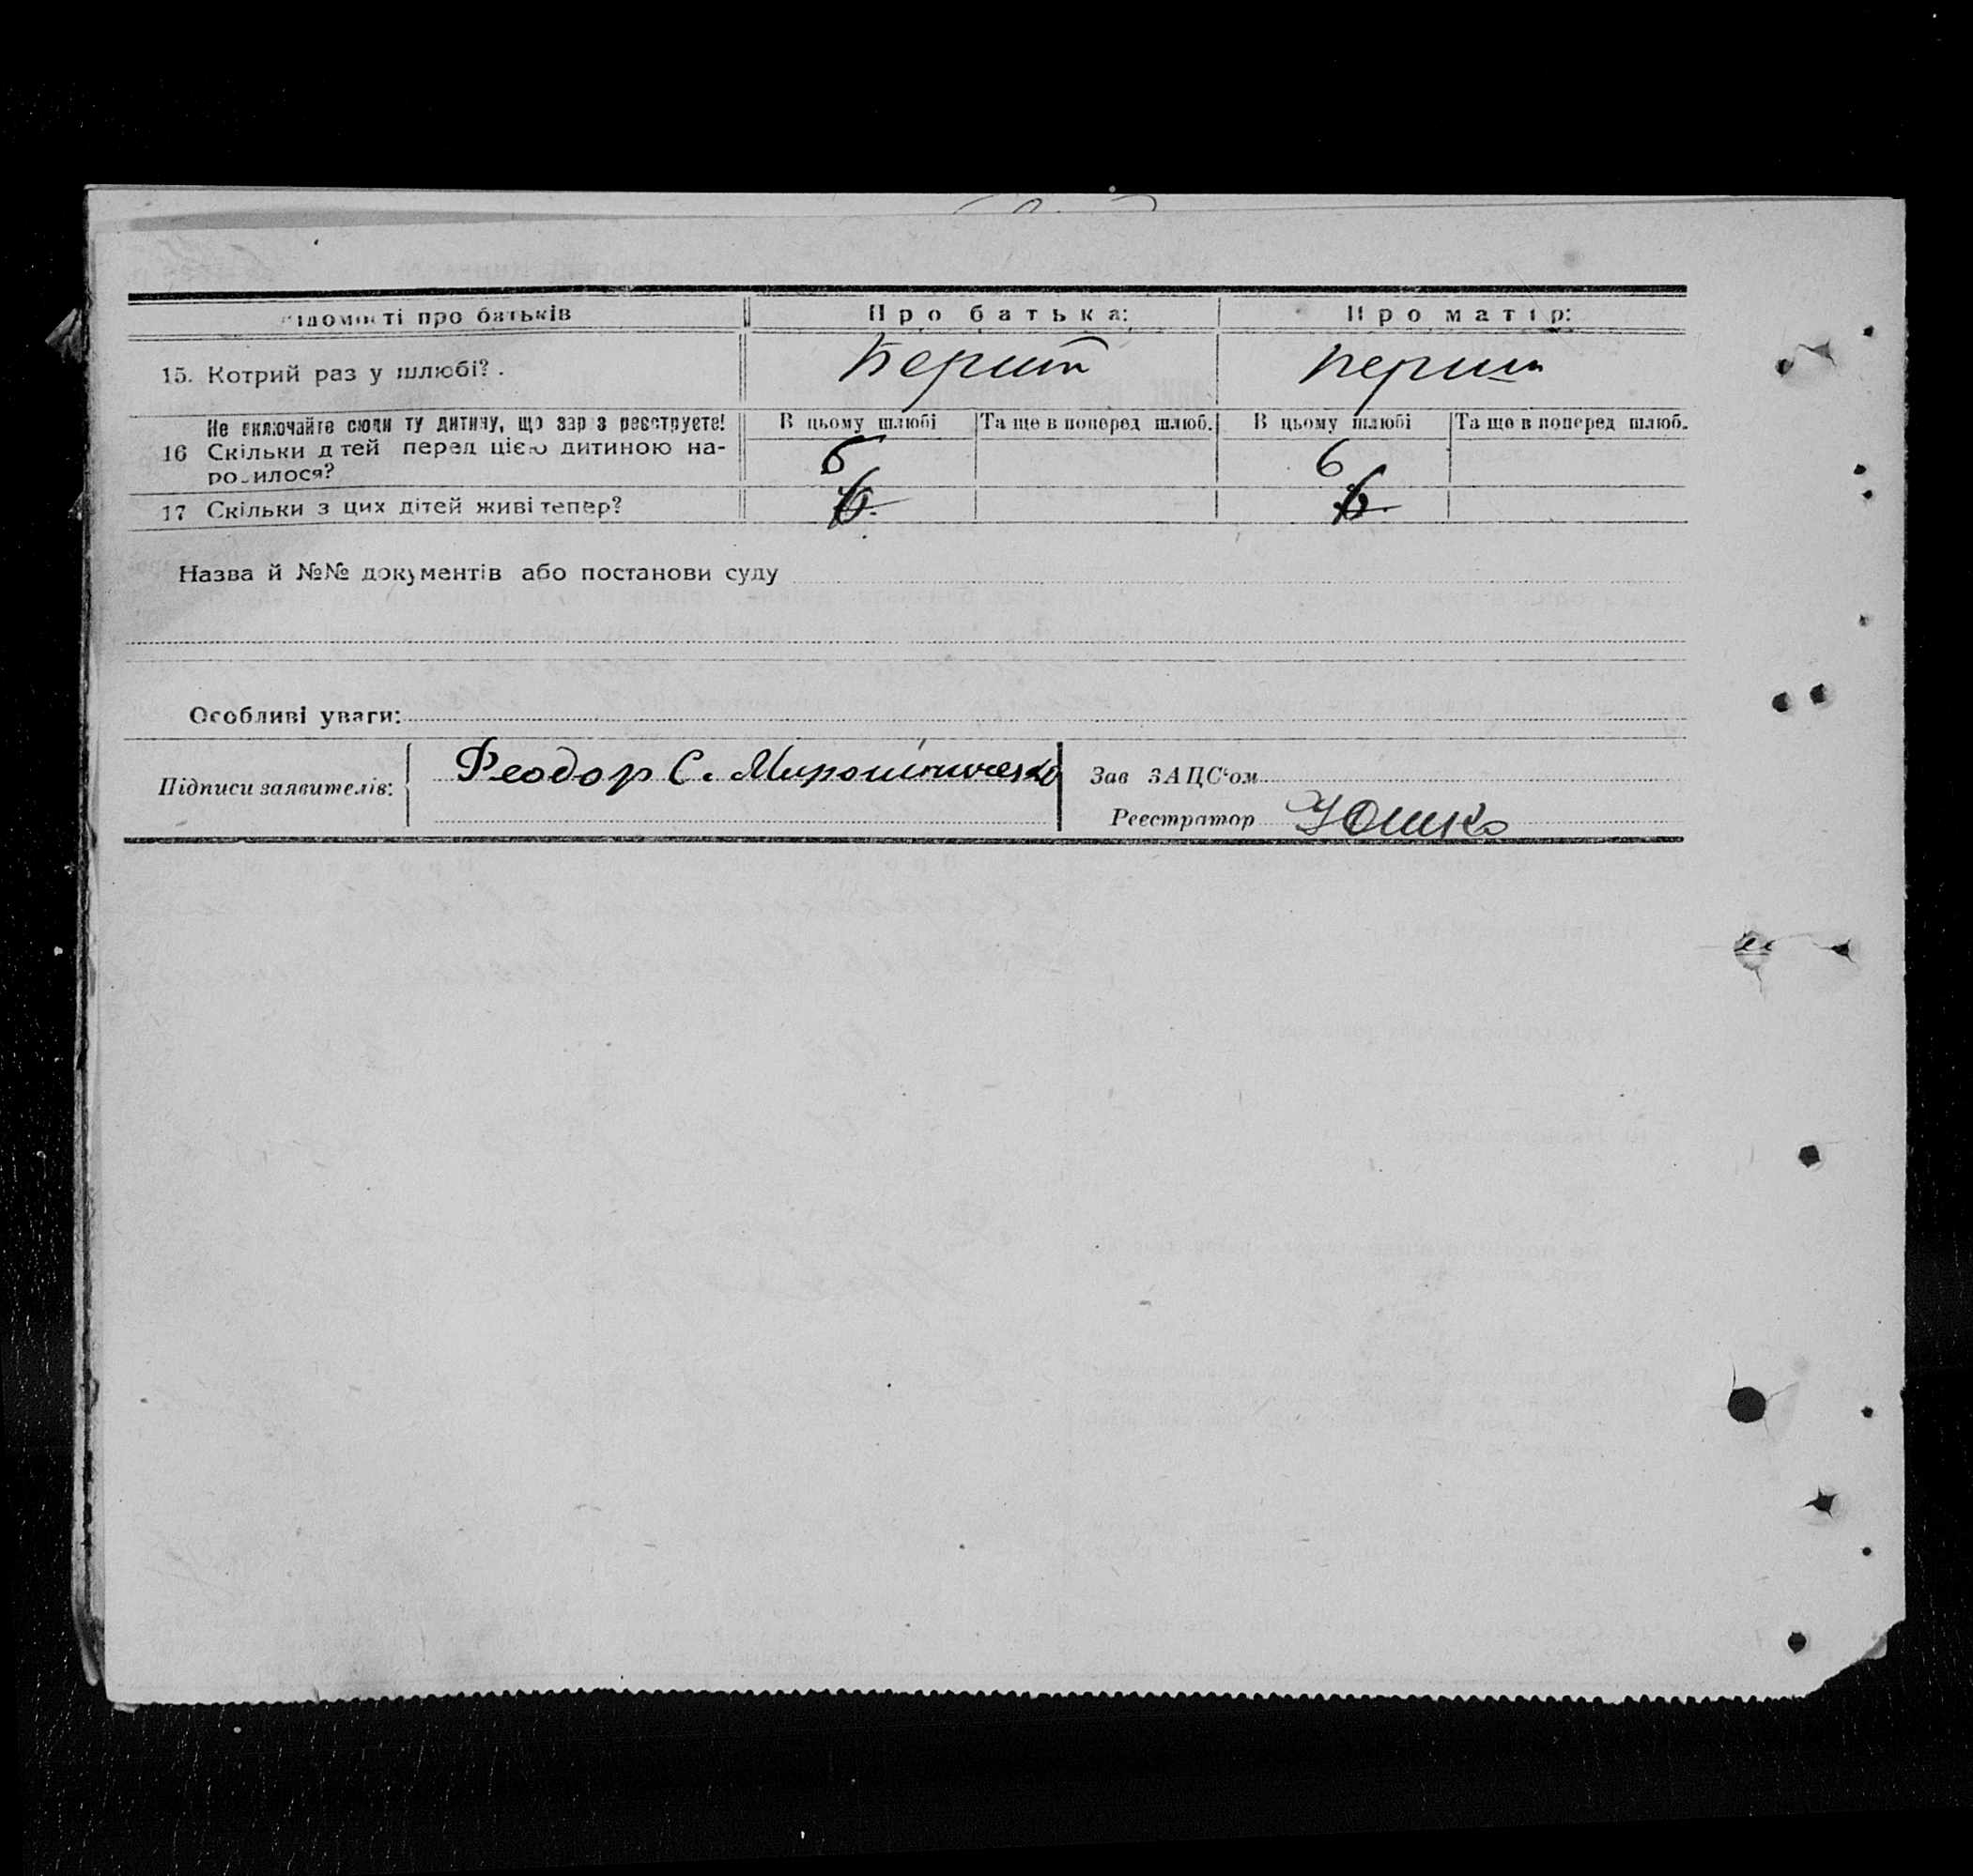 Відомості про батьків Про батька: Про матір:
15. Котрий раз у шлюбі? Перший Перший
Не включайте сюди ту дитину, що зараз реєструєте! В цьому шлюбі Та ще в поперед шлюб. В цьому шлюбі Та ще в поперед шлюб.
16 Скільки дітей перед цією дитиною на-
родилося? 6 6
17 Скільки з цих дітей живі тепер? 6. 6.
Назва й №№ документів або постанови суду
Особливі уваги:
Підписи заявителів: Феодор С. Мирошниченко Зав ЗАЦС‘ом
Реєстратор Юшко